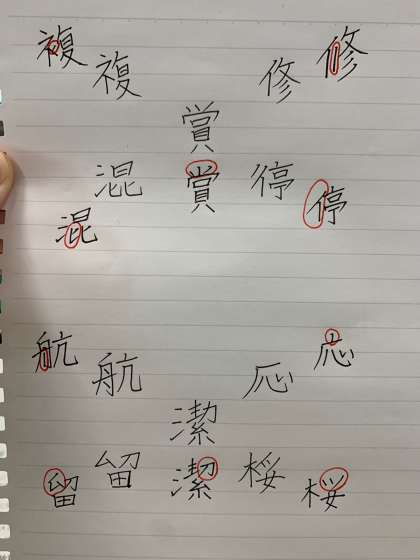 複 複 修 修
賞
混 賞 停 停
混
航 航 応 応
潔
留 留 潔 桜 桜